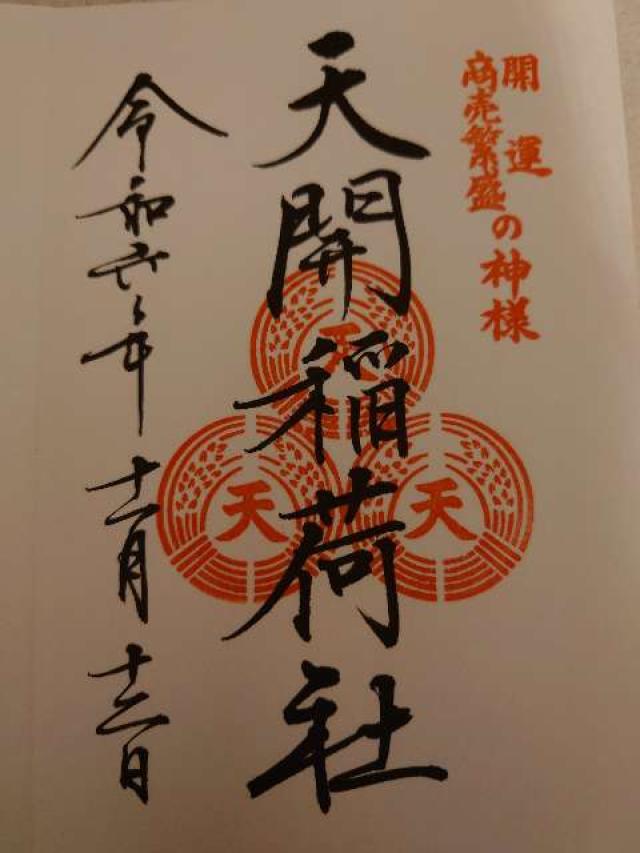 開運
商売繁盛の神様
天開稲荷社
天
天
天
令和六年
十一月
十二日